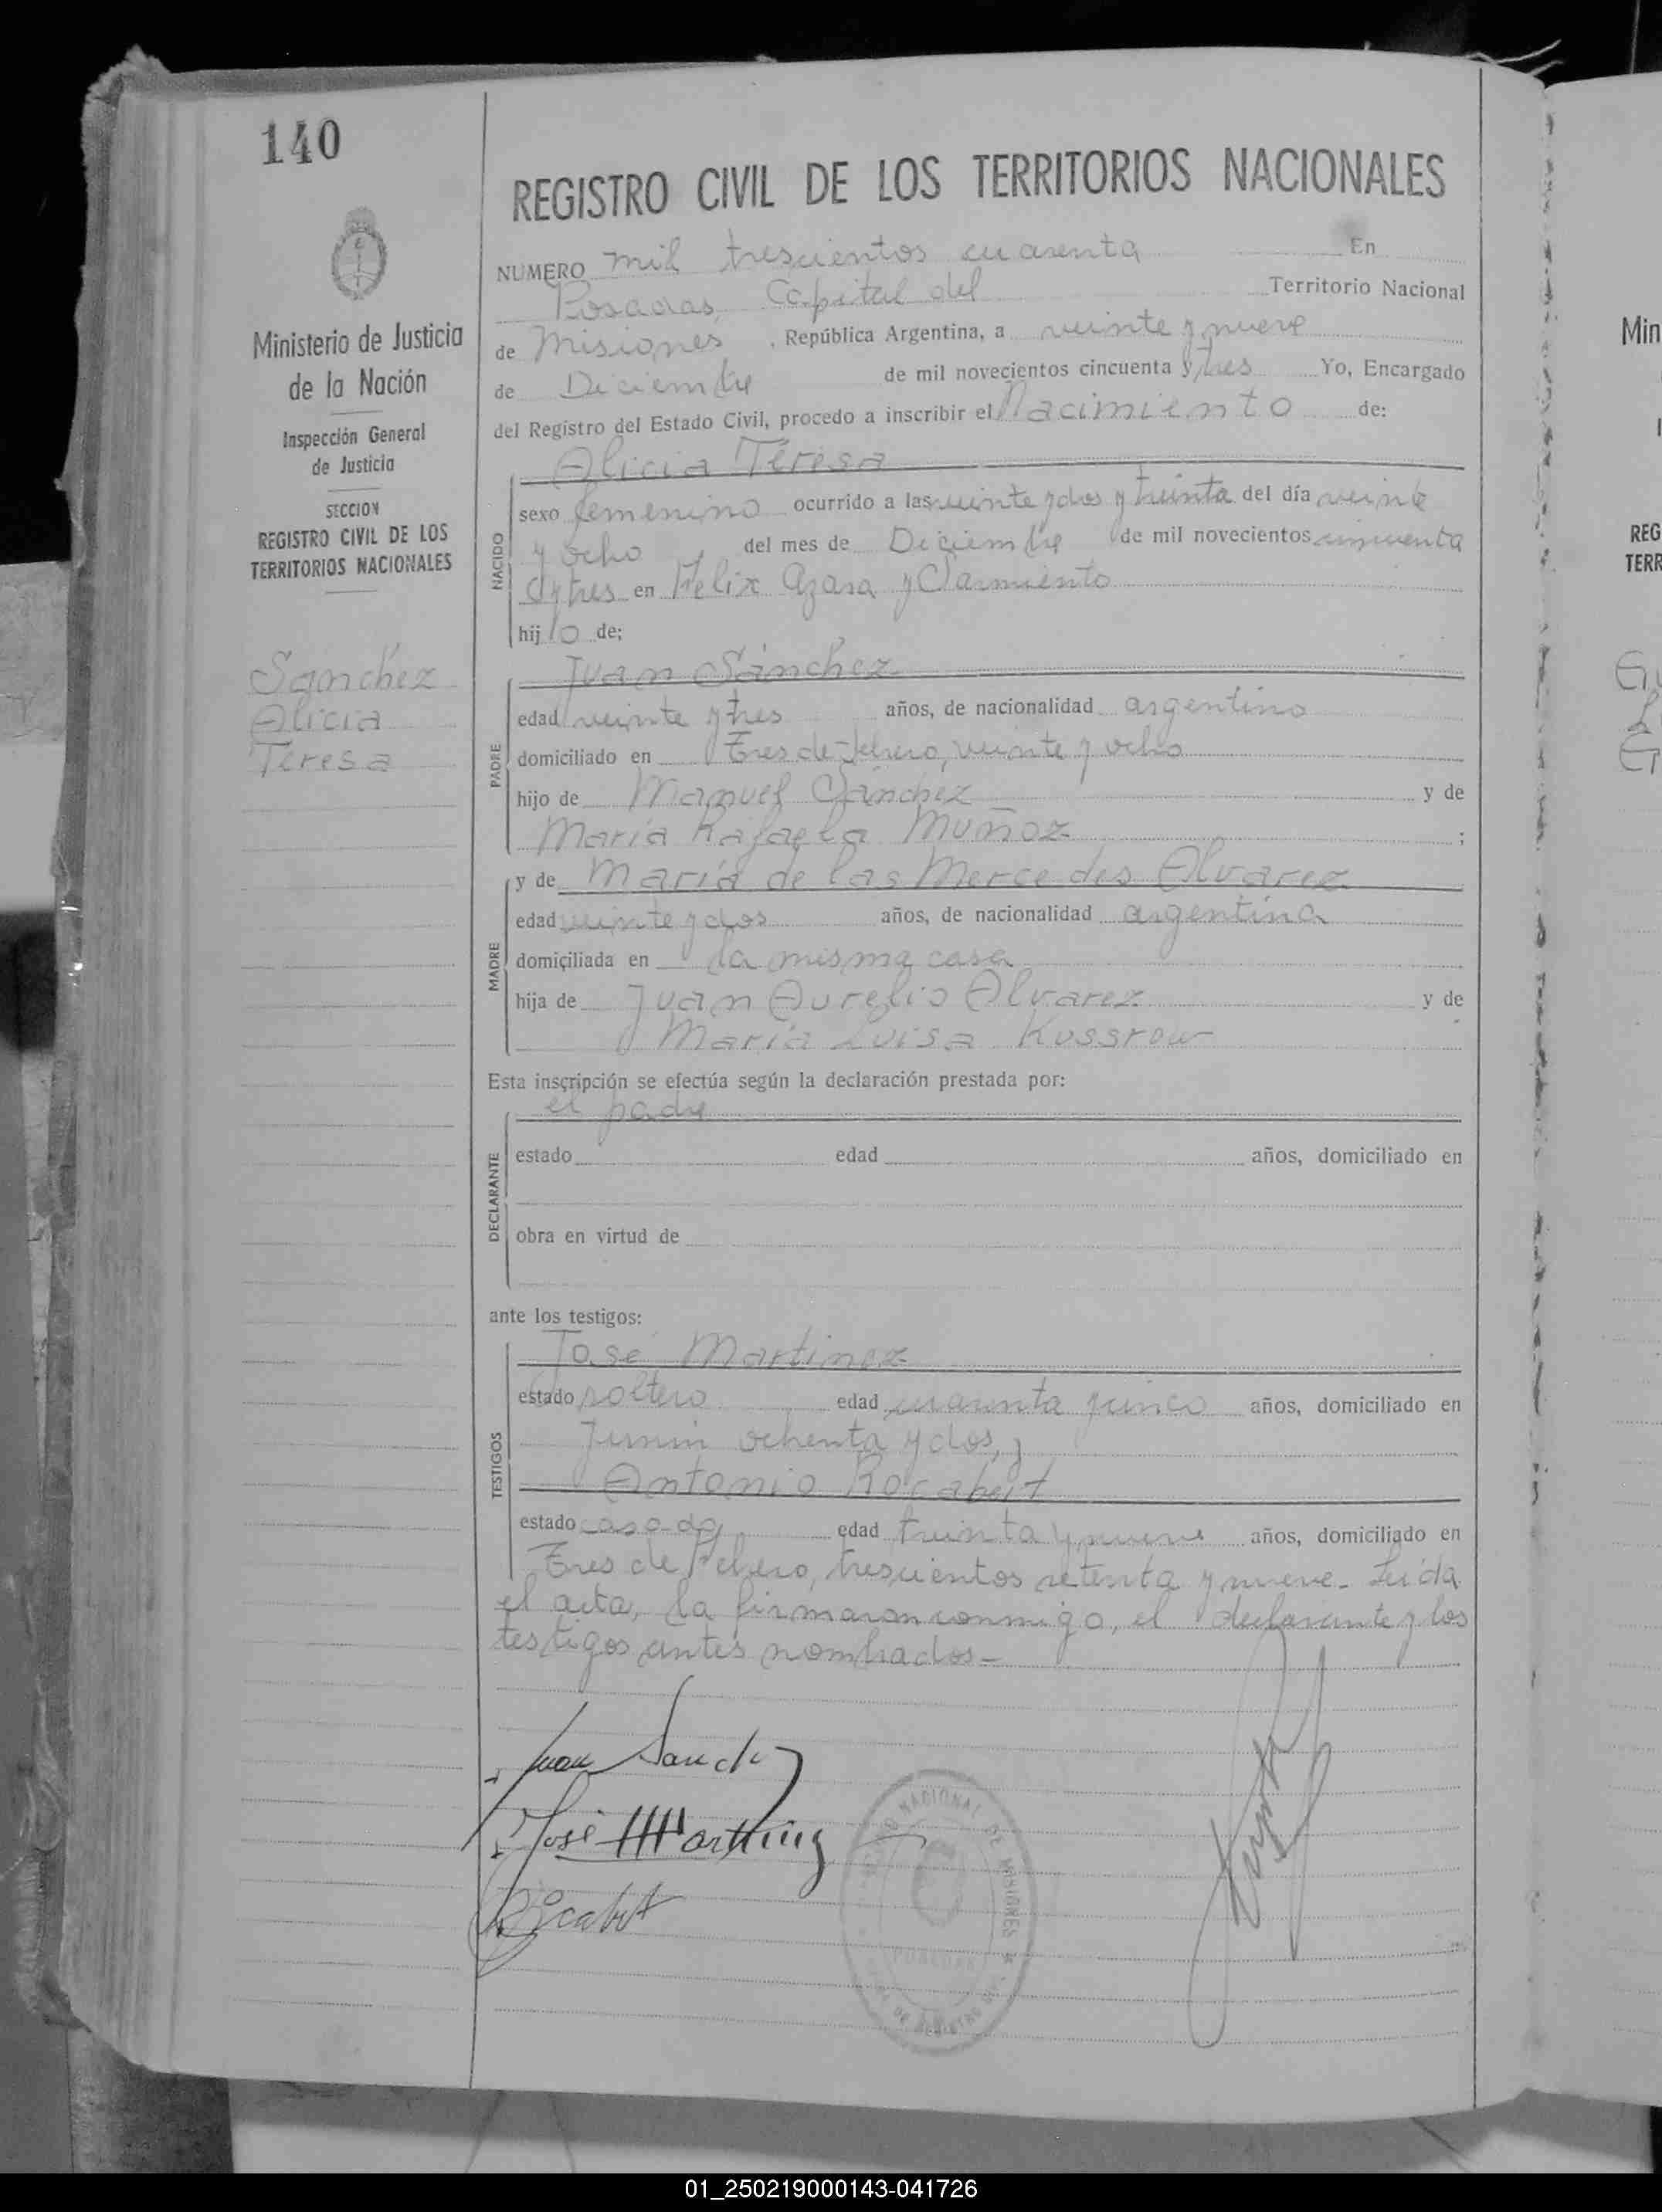 140
REGISTRO CIVIL DE LOS TERRITORIOS NACIONALES
NUMERO mil trescientos cuarenta En
Posadas, Capital del Territorio Nacional
de Misiones, República Argentina, a veinte y nueve
de Diciembre de mil novecientos cincuenta y tres Yo, Encargado
del Registro del Estado Civil, procedo a inscribir el Nacimiento de:
Ministerio de Justicia
de la Nación
Inspección General
de Justicia
SECCION
REGISTRO CIVIL DE LOS
TERRITORIOS NACIONALES
Sanchez
Alicia
Teresa
NACIDO
Alicia Teresa
sexo femenino ocurrido a las veinte y dos y treinta del día veinte
y ocho del mes de Diciembre de mil novecientos cincuenta
y tres en Felix Azara y Sarmiento
hijo de;
PADRE
Juan Sánchez
edad veinte y tres años, de nacionalidad argentino
domiciliado en Tres de Febrero, veinte y ocho
hijo de Manuel Sánchez y de
María Rafaela Muñoz ;
MADRE
y de María de las Mercedes Alvarez
edad veinte y dos años, de nacionalidad argentina
domiciliada en la misma casa
hija de Juan Aurelio Alvarez y de
María Luisa Kussrow
Esta inscripción se efectúa según la declaración prestada por:
DECLARANTE
el padre
estado edad años, domiciliado en
obra en virtud de
ante los testigos:
TESTIGOS
José Martinez
estado soltero edad cuarenta y cinco años, domiciliado en
Junin ochenta y dos, y
Antonio Rocabert
estado casado edad treinta y nueve años, domiciliado en
Tres de Febrero, trescientos setenta y nueve.- Leida
el acta, la firmaron conmigo, el declarante y los
testigos antes nombrados.-
Juan Sanchez
José Martinez
Rocabert
NACIONAL DE MISIONES
Min
REG
TERR
01_250219000143-041726